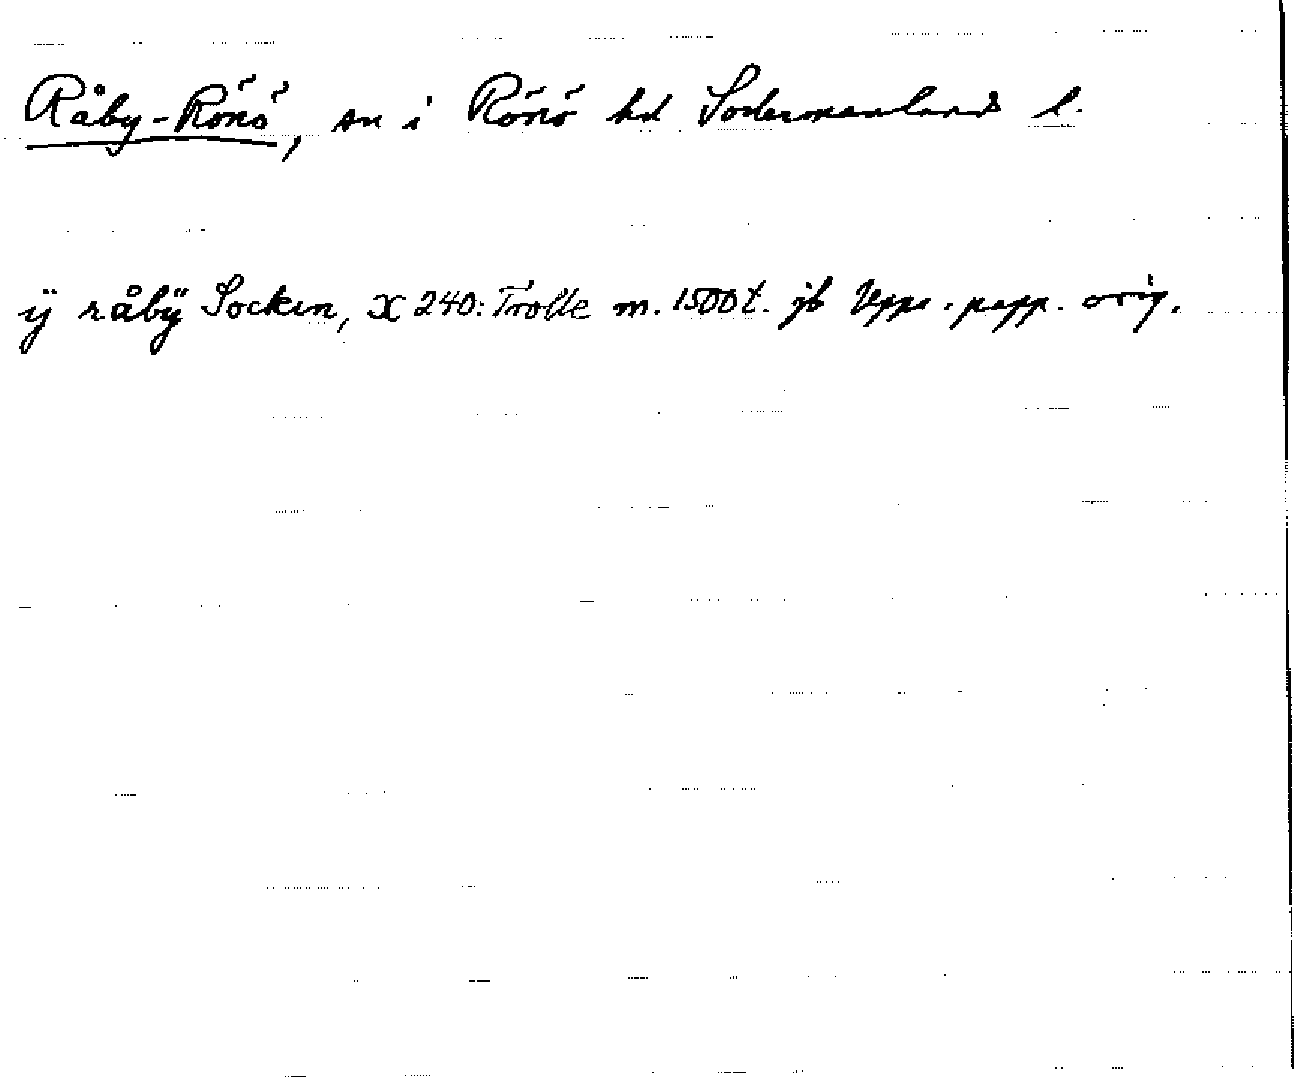 Råby-Rönö, sn i Rönö hd Södermanlands l.
ÿ råbÿ Socken, X 240: Trolle m. 1500 t. jb Upps. papp. orig.